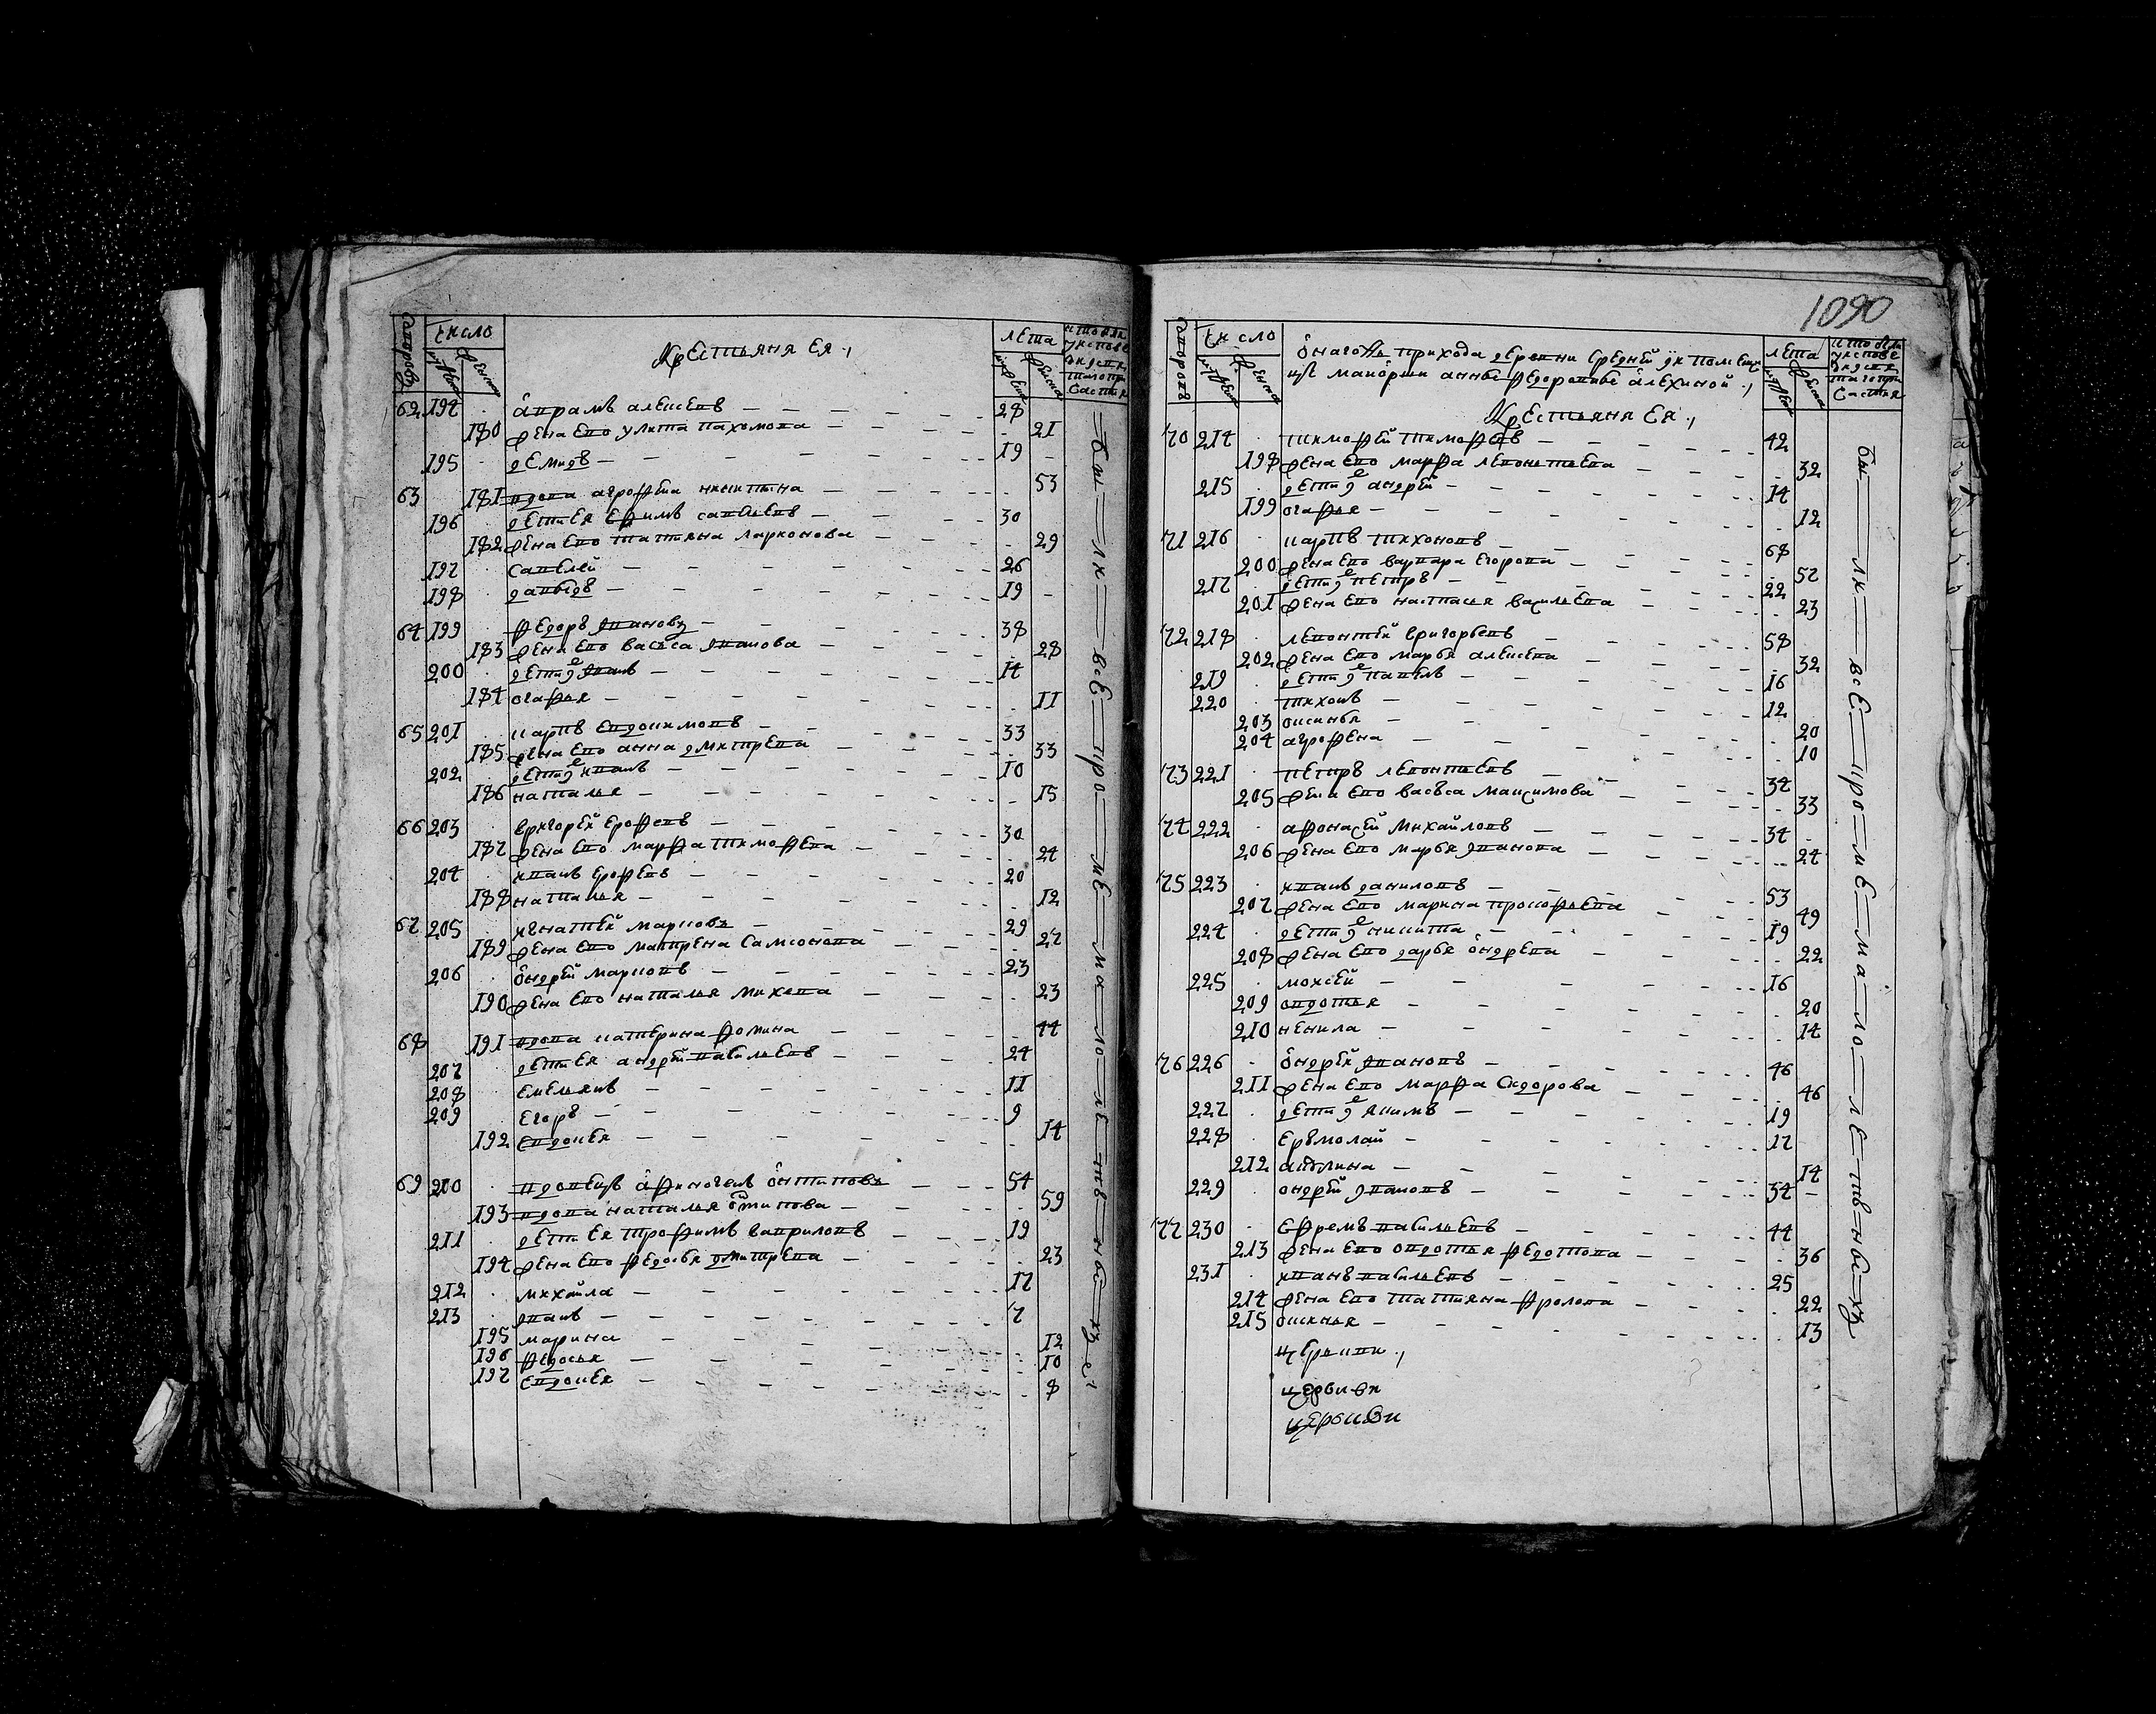 1090
число
лета
Крестьяня ея
62 194 Аврамъ алексевъ 28
180 жена ево улита пахомова 21
195 демидъ 19
63 181 вдова агрофена никитина 53
196 дети ея ефимъ савельевъ 30
182 жена ево татьяна ларионова 29
197 савелей 26
198 давыдъ 19
64 199 федоръ ивановъ 38
183 жена ево васьса иванова 28
200 дети иванъ 14
184 огафья 11
65 201 карпъ евдокимовъ 33
185 жена ево анна дмитрева 33
202 дети иванъ 10
186 наталья 15
66 203 григорей ерофевъ 30
187 жена ево марфа тимофева 24
204 иванъ ерофевъ 20
188 наталья 12
67 205 игнатей марковъ 29
189 жена ево мавтрена самсонова 27
206 ондрей марковъ 23
190 жена ево наталья михева 23
68 191 вдова катерина фомина 44
207 дети ея андрей васильевъ 24
208 емельянъ 11
209 егоръ 9
192 евдокея 14
69 210 вдовецъ антиповъ 54
193 вдова наталья антипова 59
211 дети ея трофимъ гавриловъ 19
194 жена ево федосья дмитрева 23
212 михайла 17
213 иванъ 7
195 марина 12
196 федосья 10
197 евдокея 8
бы ли все кроме малолетныхъ
число
лета
онагожъ прихода деревни средней помещи
цы маиорши анны федоровны алехиной
Крестьяня ея
70 214 тимофей тимофевъ 42
198 жена ево марфа левонтьева 32
215 дети андрей 14
199 огафья 12
71 216 карпъ тихоновъ 68
200 жена ево варвара егорова 57
217 дети петръ 22
201 жена ево настасья васильева 23
72 218 левонтей григорьевъ 58
202 жена ево марья алексева 32
219 дети павелъ 16
220 тихонъ 12
203 оксинья 20
204 агрофена 10
73 221 петръ левонтьевъ 37
205 жена ево васьса максимова 33
74 222 афонасей михайловъ 34
206 жена ево марья иванова 24
75 223 иванъ даниловъ 53
207 жена ево марина прокофьева 49
224 дети никита 19
208 жена ево дарья ондрева 22
225 моисей 16
209 овдотья 20
210 ненила 14
76 226 ондрей ивановъ 46
211 жена ево марфа сидорова 46
227 дети якимъ 19
228 ермолай 17
212 акулина 14
229 ондрей ивановъ 37
77 230 ефремъ васильевъ 44
213 жена ево овдотья федотова 36
231 иванъ васильевъ 25
214 жена ево татьяна фролова 22
215 оксинья 13
бы ли все кроме малолетныхъ
церькви
церькви
церькви